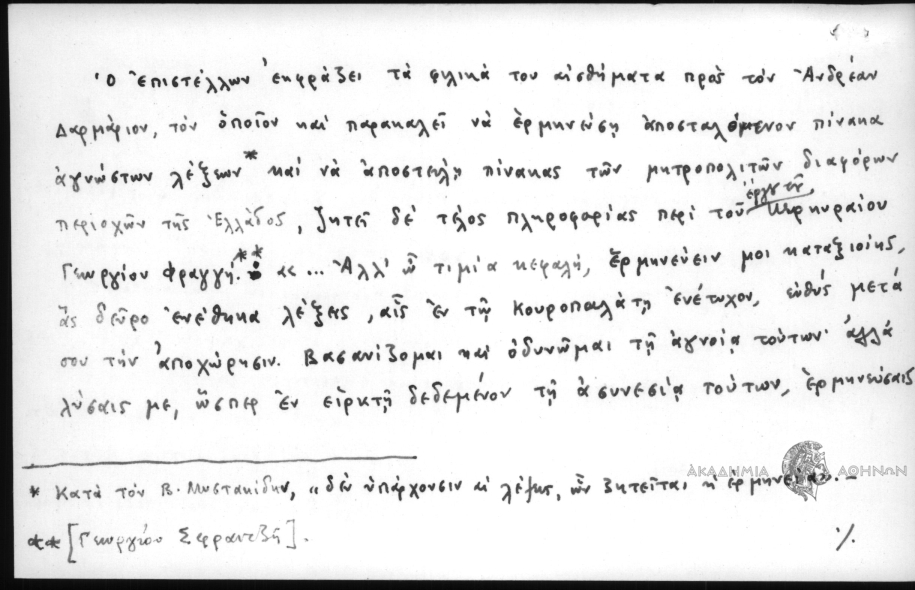 Ὁ ἐπιστέλλων ἐκφράζει τὰ φιλικά του αἰσθήματα πρὸς τὸν Ἀνδρέαν
Δαρμάριον, τὸν ὁποῖον καὶ παρακαλεῖ νὰ ἑρμηνεύσῃ ἀποσταλόμενον πίνακα
ἀγνώστων λέξεων* καὶ νὰ ἀποστείλῃ πίνακας τῶν μητροπολιτῶν διαφόρων
περιοχῶν τῆς Ἑλλάδος, ζητεῖ δὲ τέλος πληροφορίας περὶ τοῦ ἔργου τοῦ Κερκυραίου
Γεωργίου Φραγγῆ.** «... Ἀλλ' ὦ τιμία κεφαλή, ἑρμηνεύειν μοι καταξιοίης,
ἃς δεῦρο ἐνέθηκα λέξεις, αἷς ἐν τῷ Κουροπαλάτῃ ἐνέτυχον, εὐθὺς μετά
σου τὴν ἀποχώρησιν. Βασανίζομαι καὶ ὀδυνῶμαι τῇ ἀγνοίᾳ τούτων· ἀλλὰ
λύσαις με, ὥσπερ ἐν εἱρκτῇ δεδεμένον τῇ ἀσυνεσίᾳ τούτων, ἑρμηνεύσαις
* Κατὰ τὸν Β. Μυστακίδην, «δὲν ὑπάρχουσιν αἱ λέξεις, ὧν ζητεῖται ἡ ἑρμηνεία». –
** [Γεωργίου Σφραντζῆ].
./.
ΑΚΑΔΗΜΙΑ ΑΘΗΝΩΝ